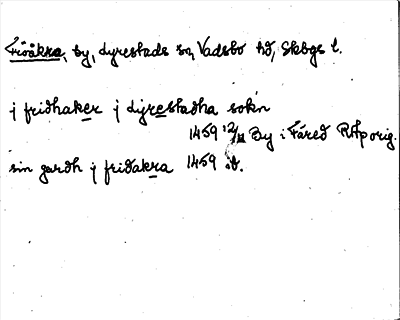 Friåkra, by, Lyrestads sn, Vadsbo hd, Skbgs l.
j fridhaker j dyrestadha sokn
1459 12/11 By i Fåred RAp orig.
sin gardh j fridakra 1459 ib.